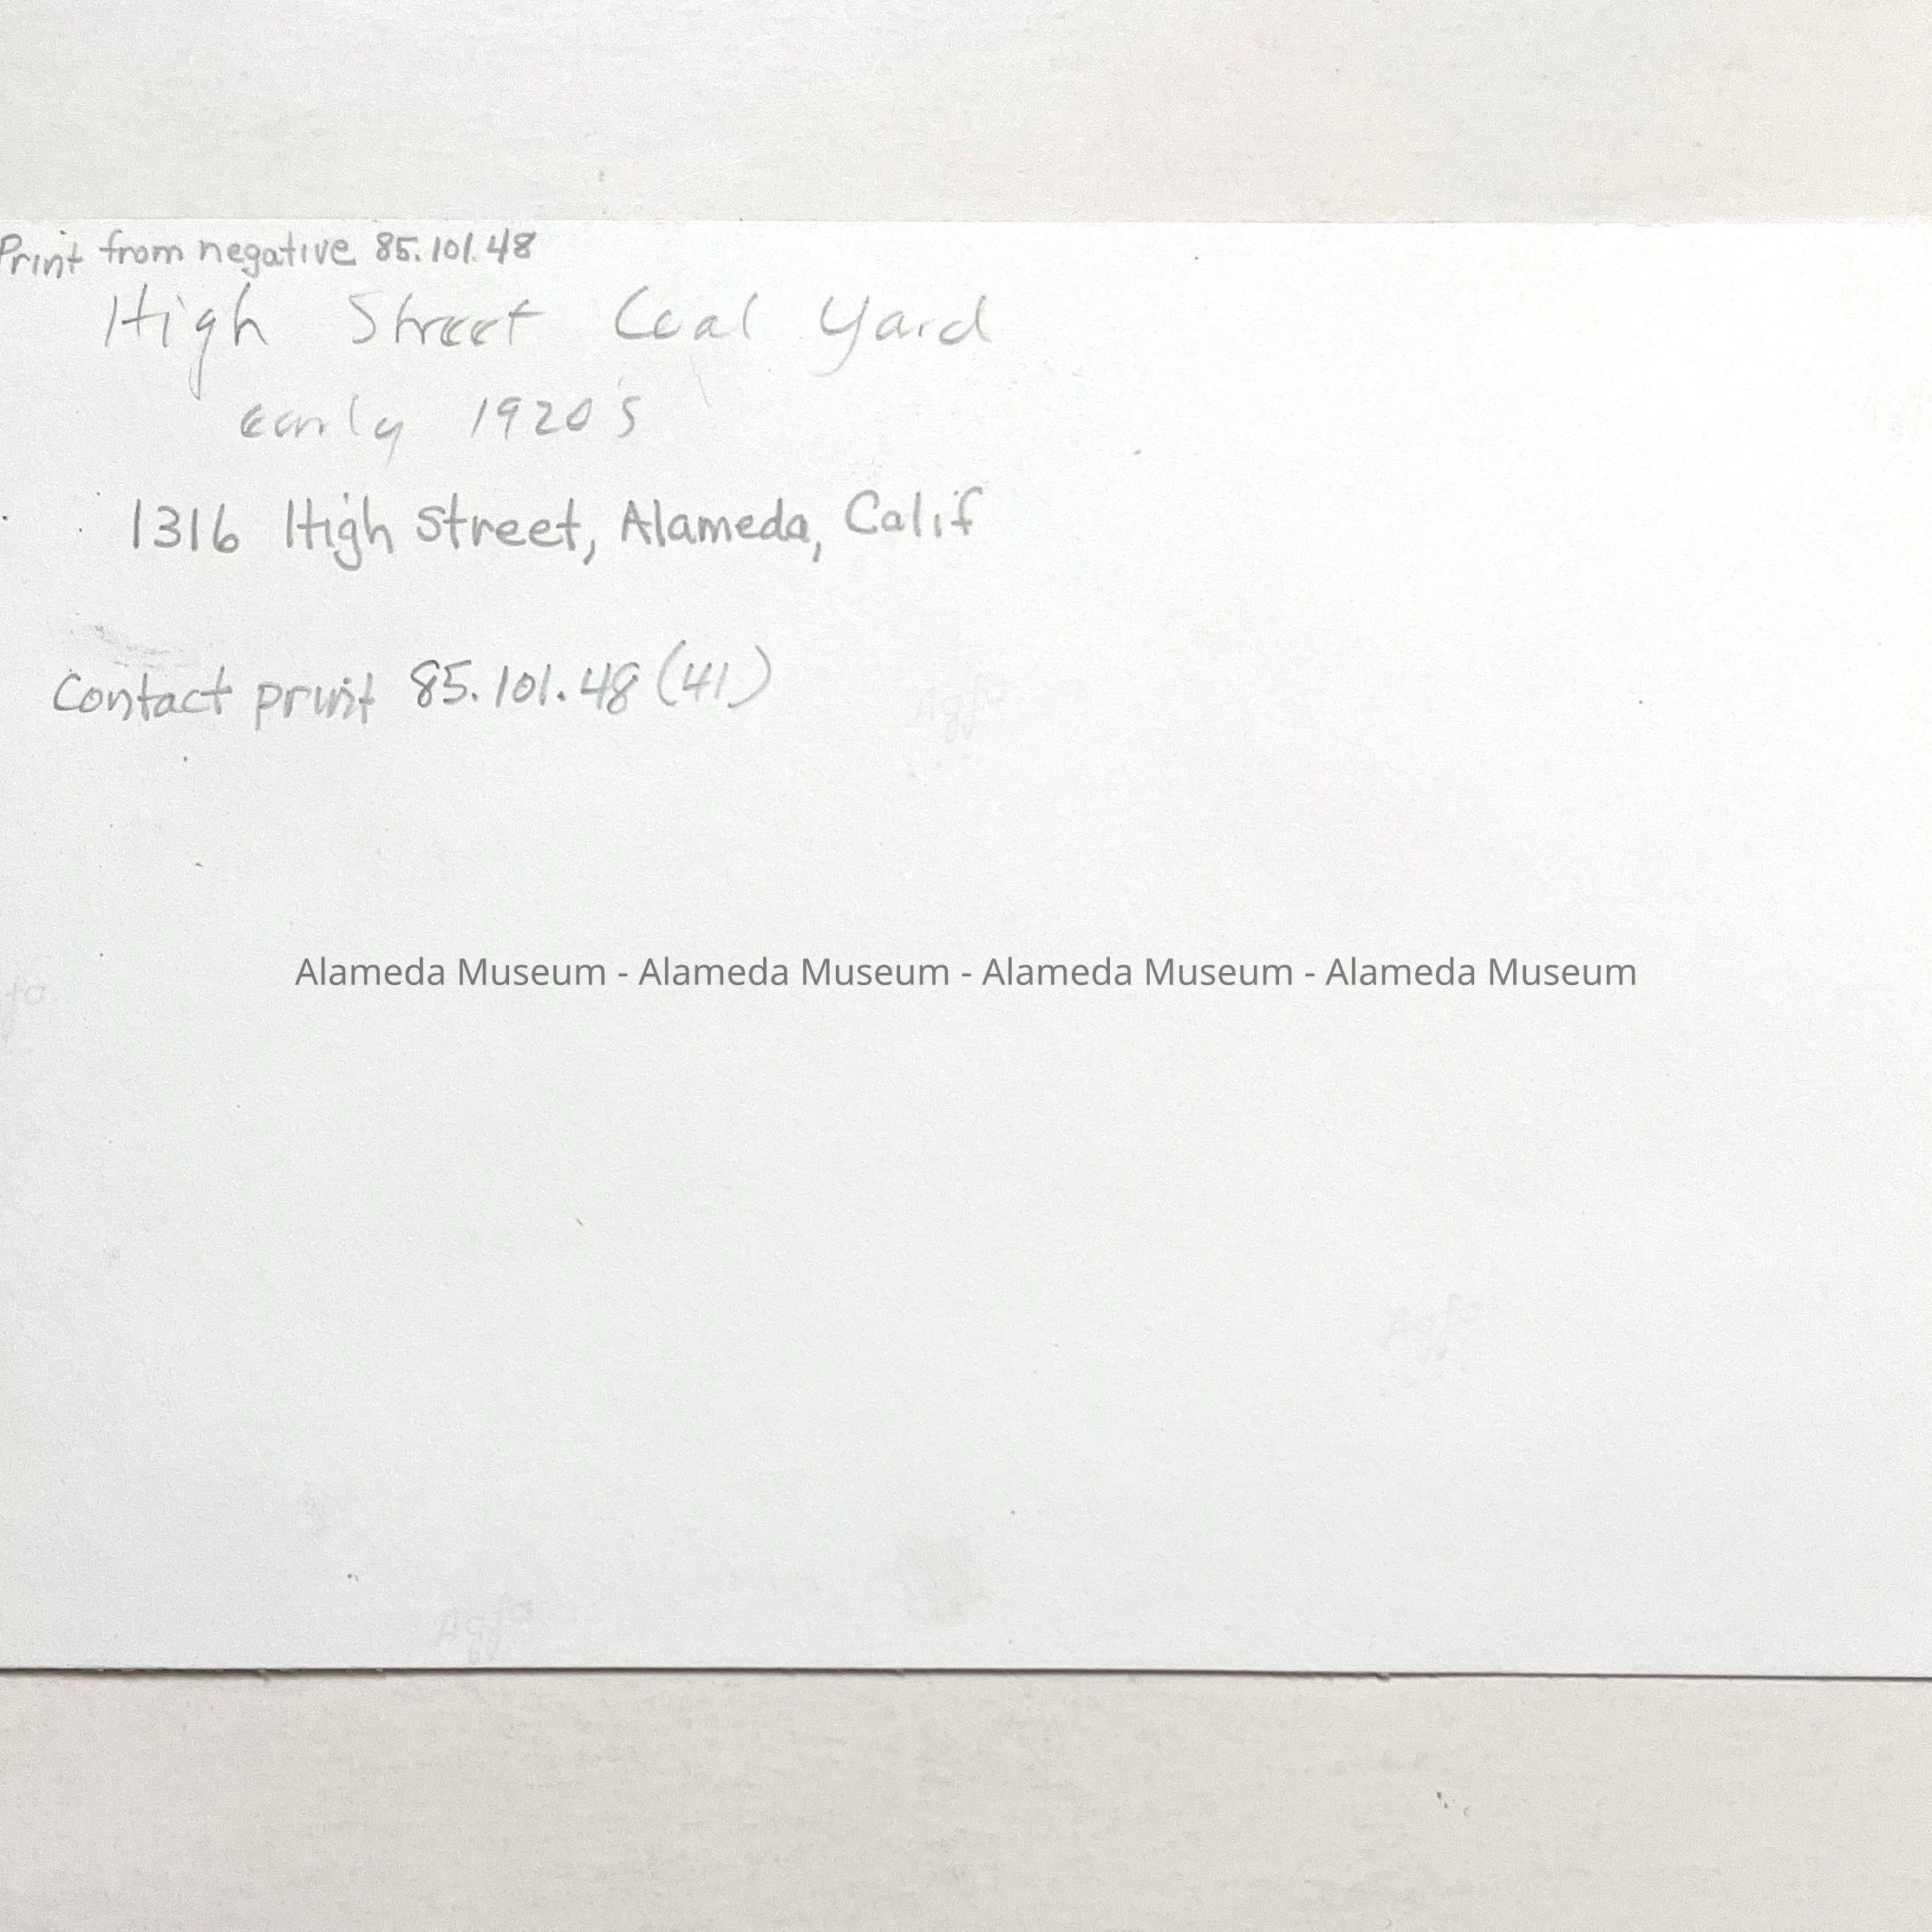 Print from negative 85.101.48
High Street Coal Yard
early 1920's
1316 High Street, Alameda, Calif
Contact print 85.101.48 (41)
Alameda Museum - Alameda Museum - Alameda Museum - Alameda Museum